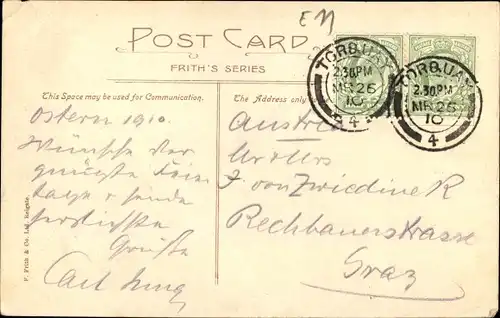 EN
POST CARD
FRITH'S SERIES
This Space may be used for Communication.
The Address only
TORQUAY
2.30PM
MR 26
10
4
TORQUAY
2.30PM
MR 26
10
4
Ostern 1910.
Wünsche ver
gnügte Feier
tage & sende
herzlichste
Grüße
Carl
Austria
Mr & Mrs
J von Zwiedinek
Rechbauerstrasse
Graz
F. Frith & Co. Ltd. Reigate.